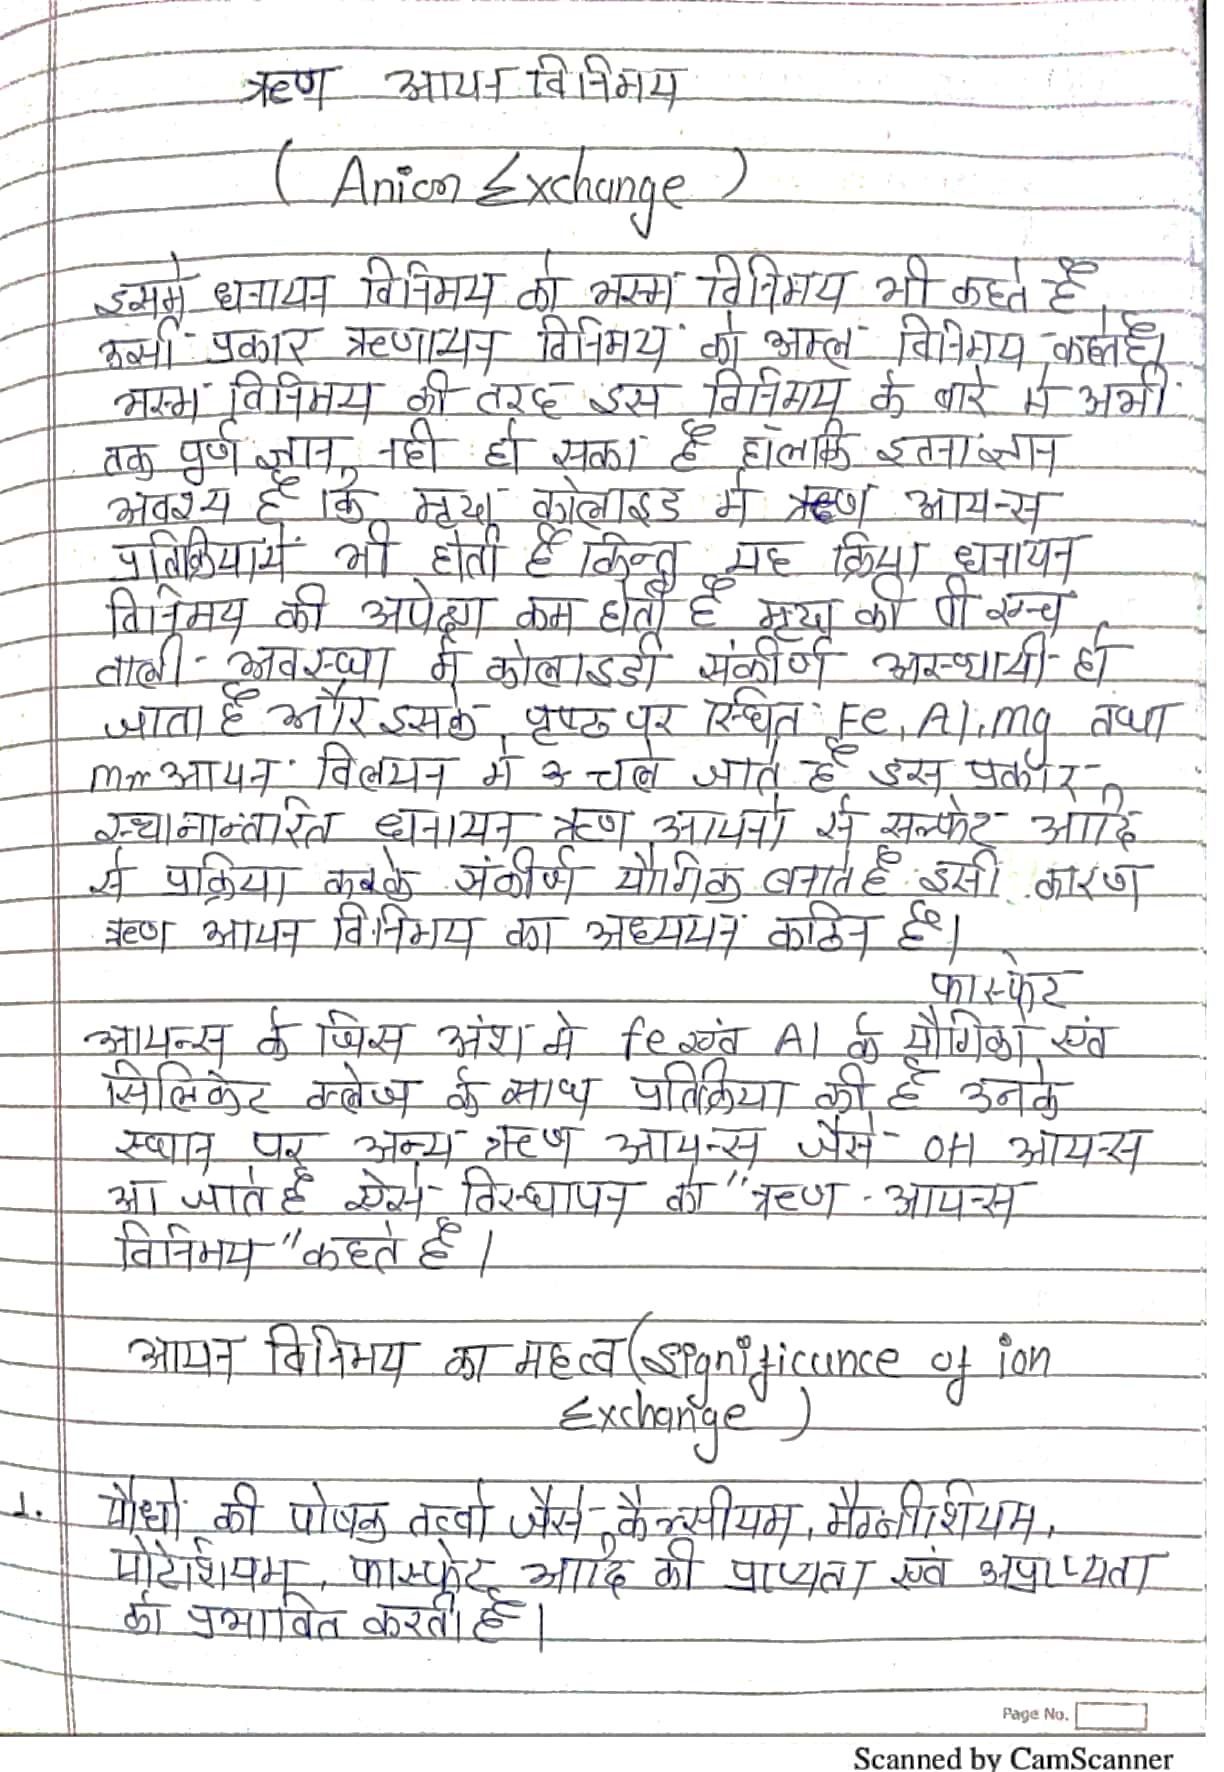 ऋण आयन विनिमय
( Anion Exchange )
इसमे धनायन विनिमय को भस्म विनिमय भी कहते है
उसी प्रकार ऋणायन विनिमय को अम्ल विनिमय कहते है।
भस्म विनिमय की तरह इस विनिमय के बारे मे अभी
तक पुर्ण ज्ञान नही हो सका है होलाकि इतना ज्ञान
अवश्य है कि मृदा कोलाइड मे ऋण आयन्स
प्रतिक्रियायें भी होती है किन्तु यह क्रिया धनायन
विनिमय की अपेक्षा कम होती है मृदा की पी एन्च
वाली अवस्था में कोलाइडी संकीर्ण अस्थायी हो
जाता है और इसके पृष्ठ पर स्थित Fe, Al, mg तथा
mn आयन विलयन मे चले जाते है इस प्रकार
स्थानान्तरित धनायन ऋण आयनो से सल्फेट आदि
से प्रक्रिया करके संकीर्ण यौगिक बनाते है इसी कारण
ऋण आयन विनिमय का अध्ययन कठिन है।
फास्फेट
आयन्स के जिस अंश मे fe एवं Al के यौगिको एवं
सिलिकेट क्लेज के साथ प्रतिक्रिया की है उनके
स्थान पर अन्य ऋण आयन्स जैसे OH आयन्स
आ जाते है ऐसे विस्थापन को "ऋण - आयन्स
विनिमय" कहते है।
आयन विनिमय का महत्व (Significance of ion
Exchange )
1. पौधो की पोषक तत्वो जैसे कैल्सीयम, मैग्नीशियम,
पोटेशियम, फास्फेट आदि की प्राप्यता एवं अप्राप्यता
को प्रभावित करती है।
Page No.
Scanned by CamScanner